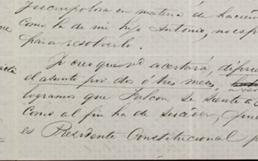 en materia de hacien
como la de mi hijo Antonio, no cap
para resolverlo.
Yo creo que se acertará, difirie
el asunto por dos ó tres meses,
logramos que Falcon se siente a
como al fin ha de suceder, pues
es Presidente Constitucional p